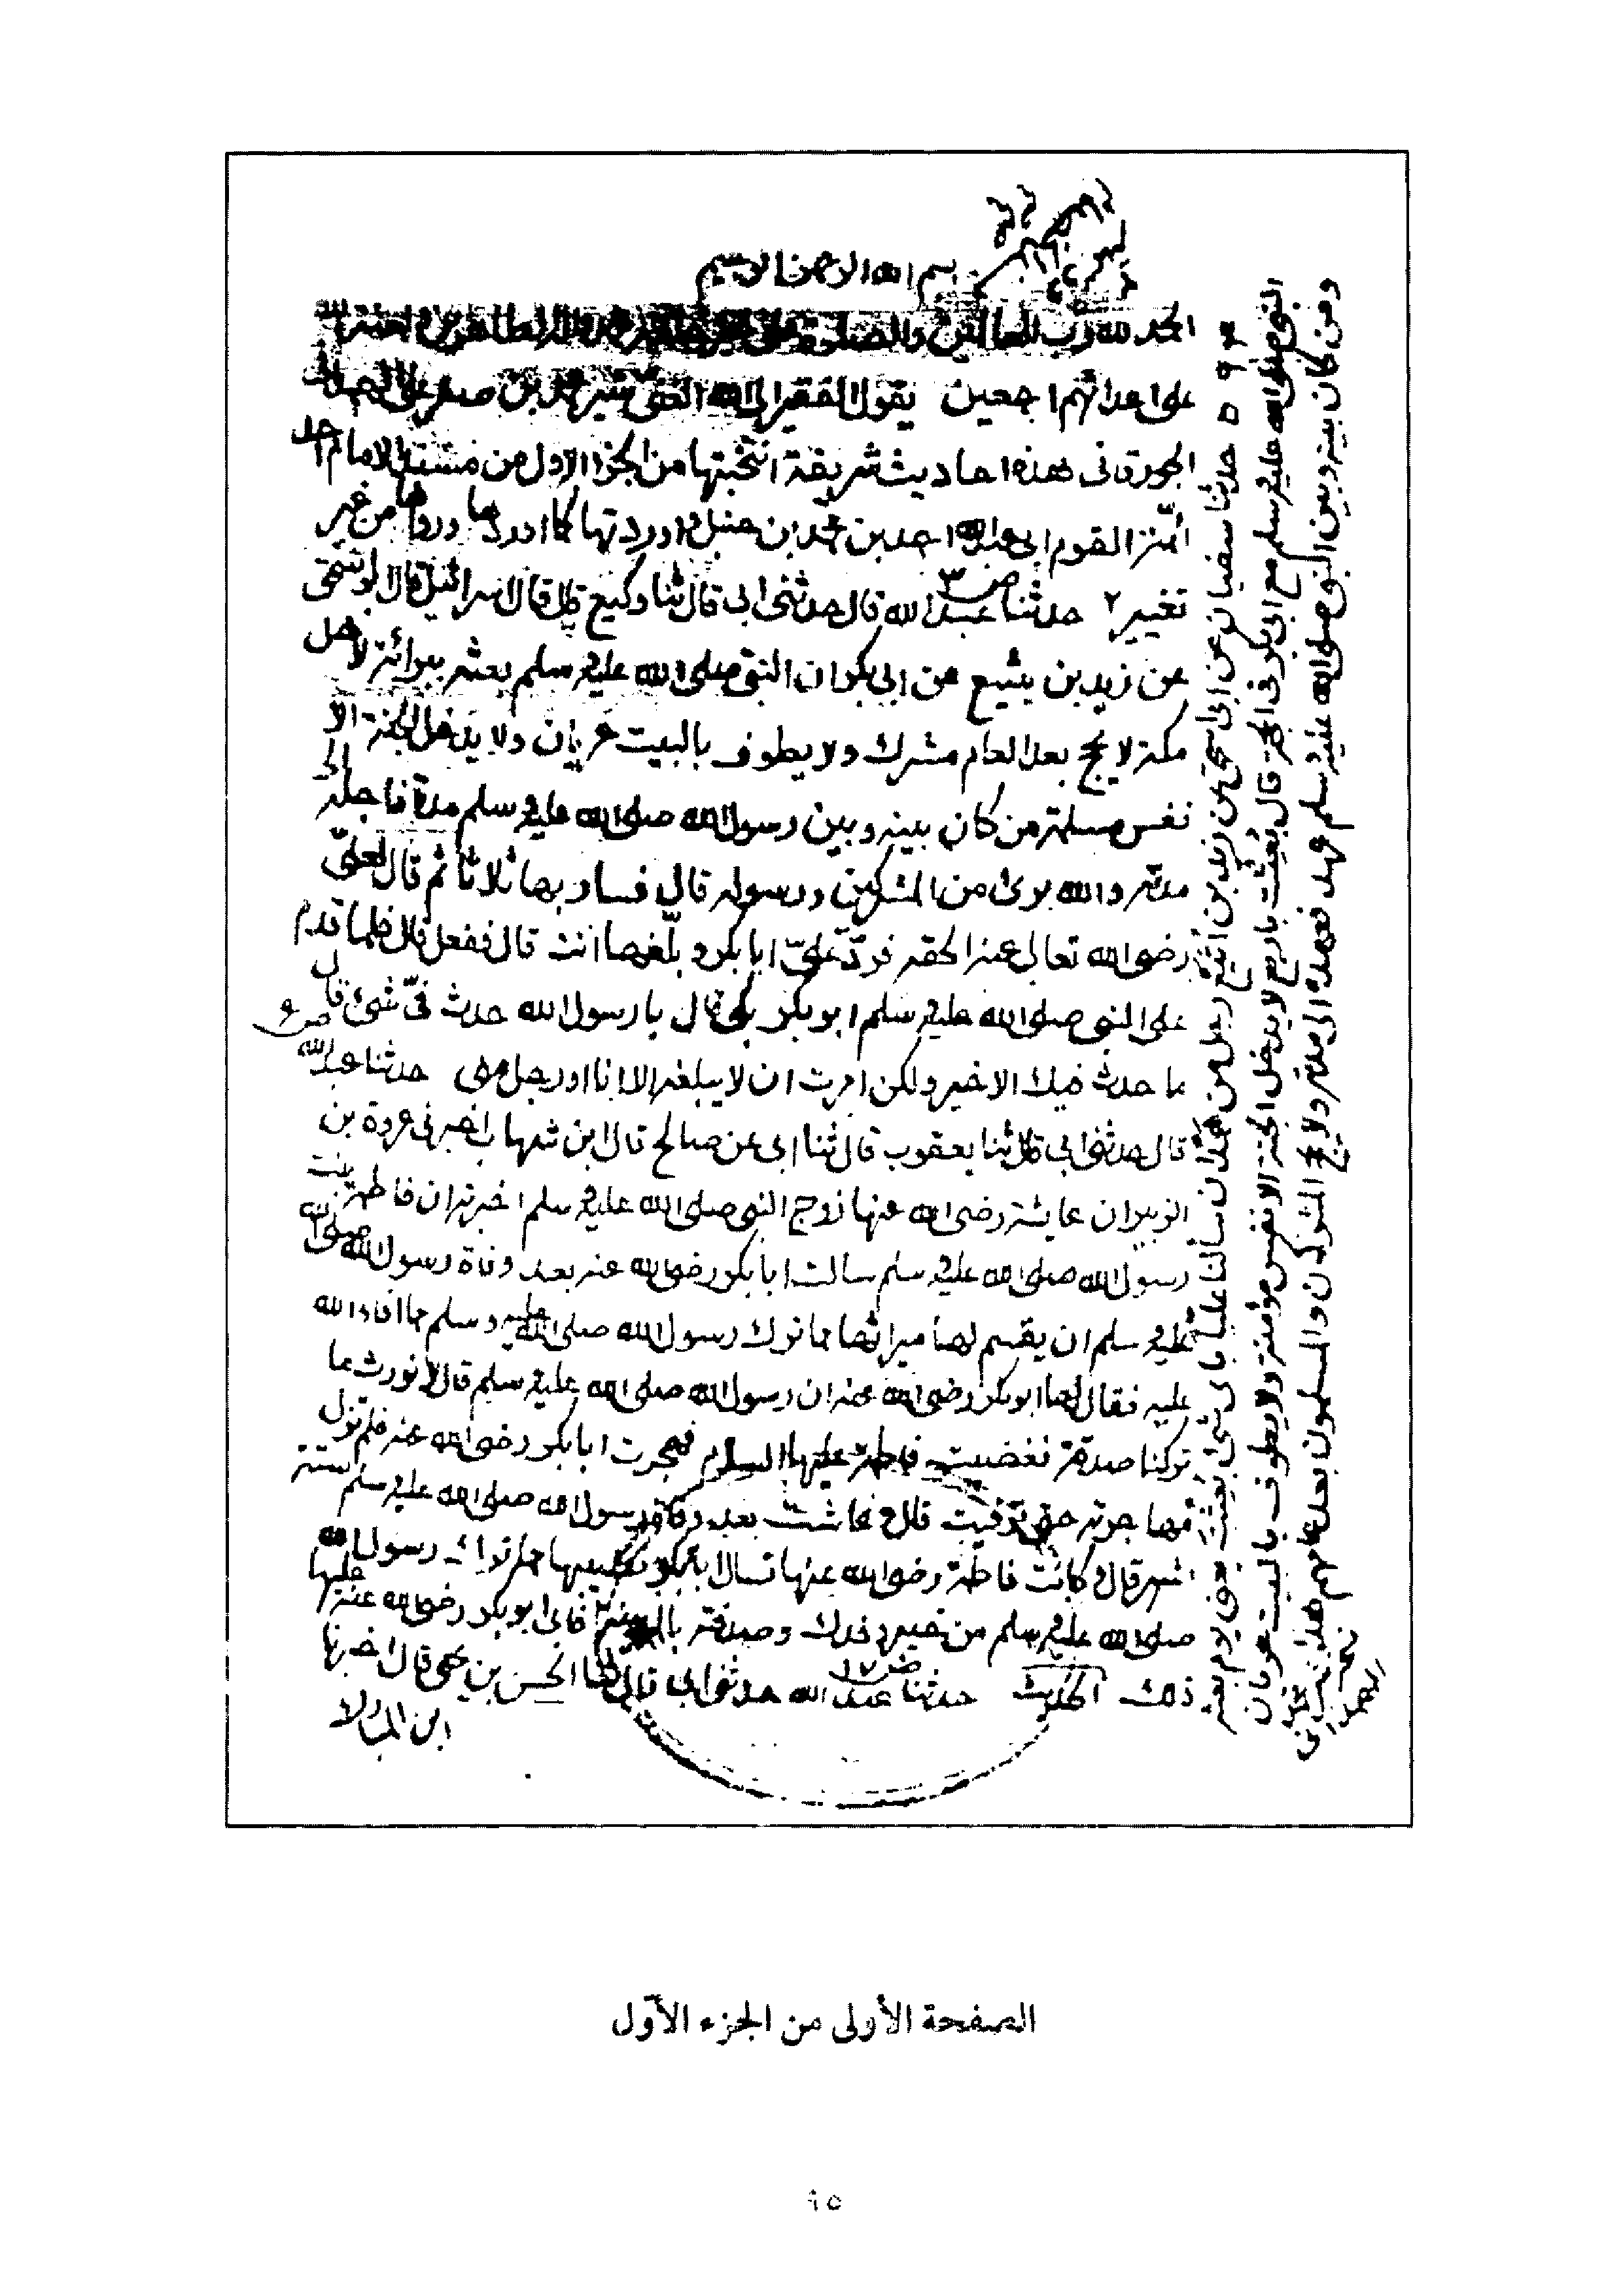 بسم الله الرحمن الرحيم
الحمد لله رب العالمين والصلوة على الطاهرين ولعنة الله
على اعدائهم اجمعين يقول الفقير الى الله الغنى شير محمد بن صفر على الهمدانى
الجورقانى هذه احاديث شريفة انتخبتها من الجزء الاول من مسند الامام احمد
القوم ابى عبد الله احمد بن محمد بن حنبل واوردتها كما اوردها ورواها من غير
تغيير ٢ حدثنا عبد الله قال حدثنى ابى قال ثنا وكيع قال قال اسرائيل قال ابو اسحق
عن زيد بن يثيع عن ابى بكر ان النبى صلى الله عليه وسلم بعثه ببرائة لاهل
مكة لا يحج بعد العام مشرك ولا يطوف بالبيت عريان ولا يدخل الجنة الا
نفس مسلمة من كان بينه وبين رسول الله صلى الله عليه وسلم مدة فاجله الى
مدته والله برئ من المشركين ورسوله قال فسار بها ثلاثا ثم قال لعلىّ
رضى الله تعالى عنه الحقه فردّ علىّ ابا بكر وبلّغها انت قال ففعل قال فلما قدم
على النبى صلى الله عليه وسلم ابو بكر بكى قال يا رسول الله حدث فىّ شئ قال
ما حدث فيك الا خير ولكن امرت ان لا يبلغه الا انا او رجل منى حدثنا عبد الله
قال حدثنى ابى قال ثنا يعقوب قال ثنا ابى عن صالح قال ابن شهاب اخبرنى عروة بن
الزبير ان عايشة رضى الله عنها زوج النبى صلى الله عليه وسلم اخبرته ان فاطمة بنت
رسول الله صلى الله عليه وسلم سالت ابا بكر رضى الله عنه بعد وفاة رسول الله صلى الله
عليه وسلم ان يقسم لها ميراثها مما ترك رسول الله صلى الله عليه وسلم مما افاء الله
عليه فقال لها ابو بكر رضى الله عنه ان رسول الله صلى الله عليه وسلم قال لا نورث ما
تركنا صدقة فغضبت فاطمة عليها السلام فهجرت ابا بكر رضى الله عنه فلم تزل
مهاجرته حتى توفيت قال وعاشت بعد وفاة رسول الله صلى الله عليه وسلم ستة
اشهر قال وكانت فاطمة رضى الله عنها تسال ابا بكر نصيبها مما ترك رسول الله
صلى الله عليه وسلم من خيبر وفدك وصدقته بالمدينة فابى ابو بكر رضى الله عنه عليها
ذلك الحديث حدثنا عبد الله حدثنى ابى قال ثنا الحسن بن يحيى قال اخبرنا
ابن المبارك
٥٩٤ حدثنا سفيان عن ابى اسحق عن زيد بن اثيع رجل من همدان سالنا عليا باى شئ بعثت يعنى يوم بعثه
النبى صلى الله عليه وسلم مع ابى بكر فى الحجة قال بعثت باربع لا يدخل الجنة الا نفس مؤمنة ولا يطوف بالبيت عريان
ومن كان بينه وبين النبى صلى الله عليه وسلم عهد فعهده الى مدته ولا يحج المشركون والمسلمون بعد عامهم هذا
الصفحة الأولى من الجزء الأوّل
٦٥